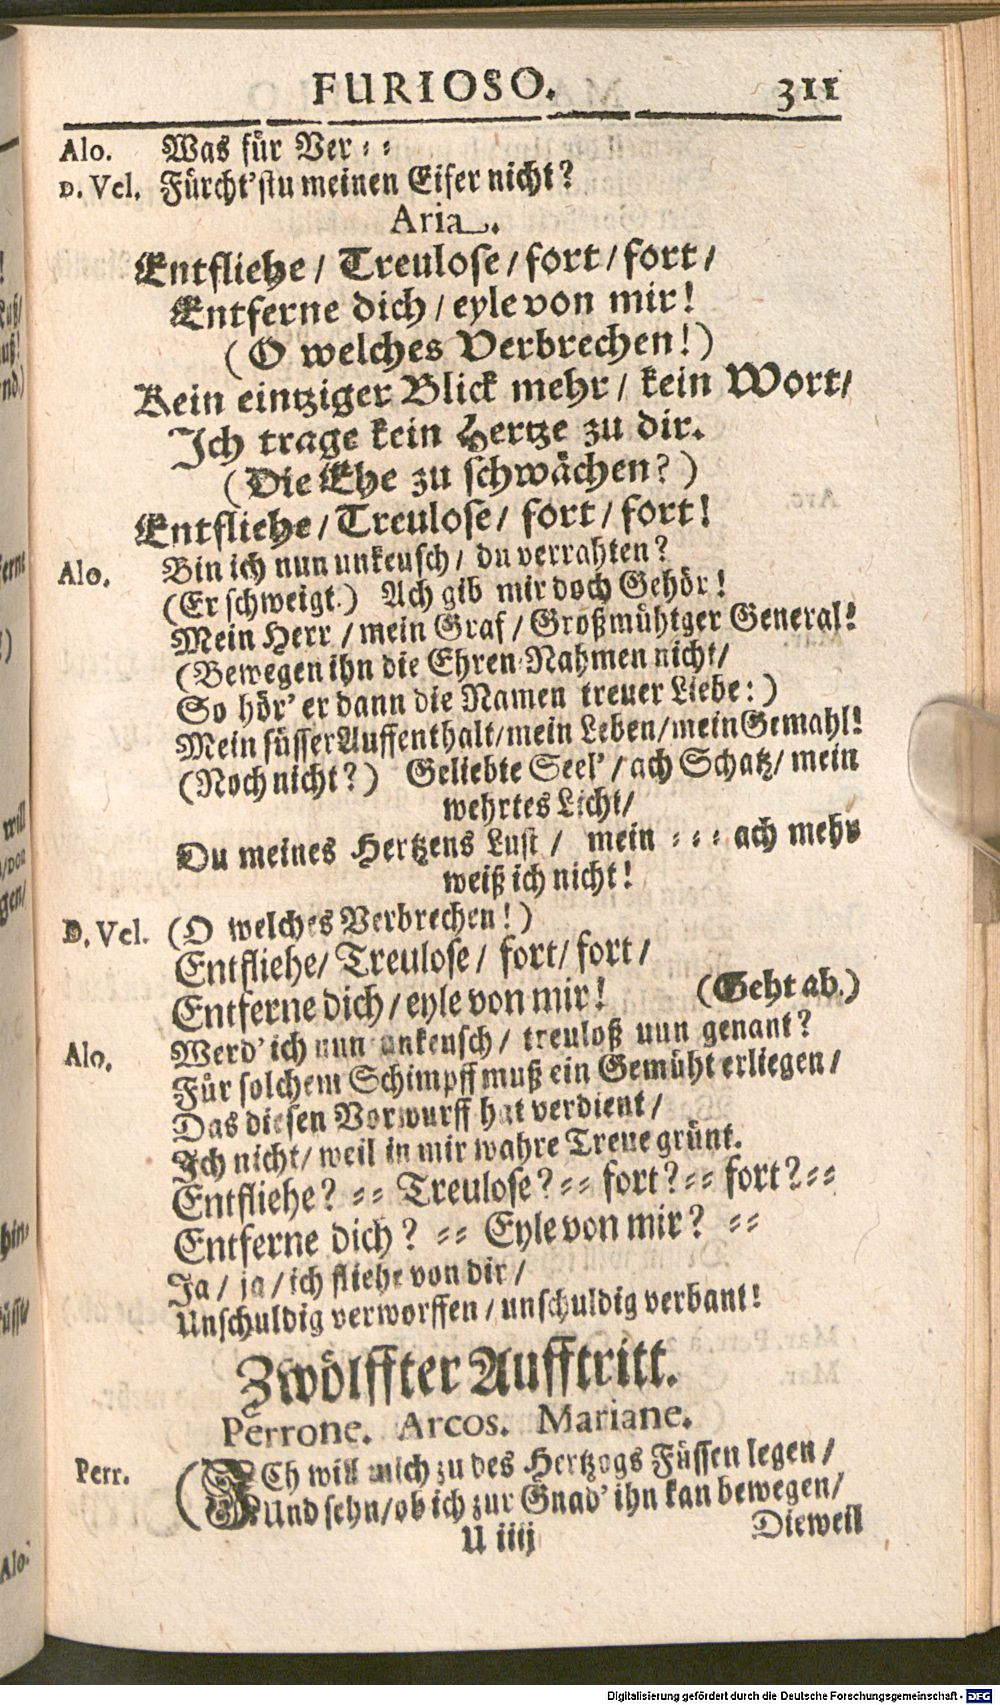 FURIOSO. 311
Alo. Was für Ver⸗ ⸗
D. Vel. Fürcht'stu meinen Eifer nicht?
Aria.
Entfliehe / Treulose / fort / fort /
Entferne dich / eyle von mir!
(O welches Verbrechen!)
Kein eintziger Blick mehr / kein Wort /
Ich trage kein Hertze zu dir.
(Die Ehe zu schwächen?)
Entfliehe / Treulose / fort / fort!
Alo. Bin ich nun unkeusch / du verrahten?
(Er schweigt.) Ach gib mir doch Gehör!
Mein Herr / mein Graf / Großmühtger General!
(Bewegen ihn die Ehren⸗Nahmen nicht /
So hör' er dann die Namen treuer Liebe:)
Mein süsser Auffenthalt / mein Leben / mein Gemahl!
(Noch nicht?) Geliebte Seel' / ach Schatz / mein
wehrtes Licht /
Du meines Hertzens Lust / mein ⸗ ⸗ ⸗ ach mehr
weiß ich nicht!
D. Vel. (O welches Verbrechen!)
Entfliehe / Treulose / fort / fort /
Entferne dich / eyle von mir! (Geht ab.)
Alo. Werd' ich nun unkeusch / treuloß nun genant?
Für solchem Schimpff muß ein Gemüht erliegen /
Das diesen Vorwurff hat verdient /
Ich nicht / weil in mir wahre Treue grünt.
Entfliehe? ⸗⸗ Treulose? ⸗⸗ fort? ⸗⸗ fort? ⸗⸗
Entferne dich? ⸗⸗ Eyle von mir? ⸗⸗
Ja / ja / ich fliehe von dir /
Unschuldig verworffen / unschuldig verbant!
Zwölffter Aufftritt.
Perrone. Arcos. Mariane.
Perr. (ICh will mich zu des Hertzogs Füssen legen /
Und sehn / ob ich zur Gnad' ihn kan bewegen /
U iiij Dieweil
Digitalisierung gefördert durch die Deutsche Forschungsgemeinschaft - DFG